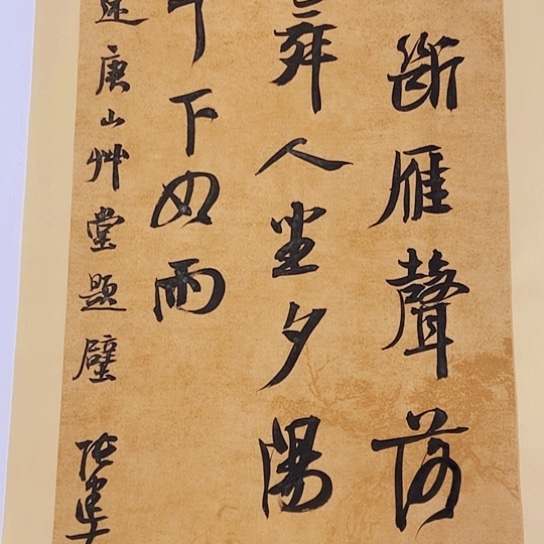 斷雁聲落
人坐夕陽
下如雨
庚山艸堂題壁